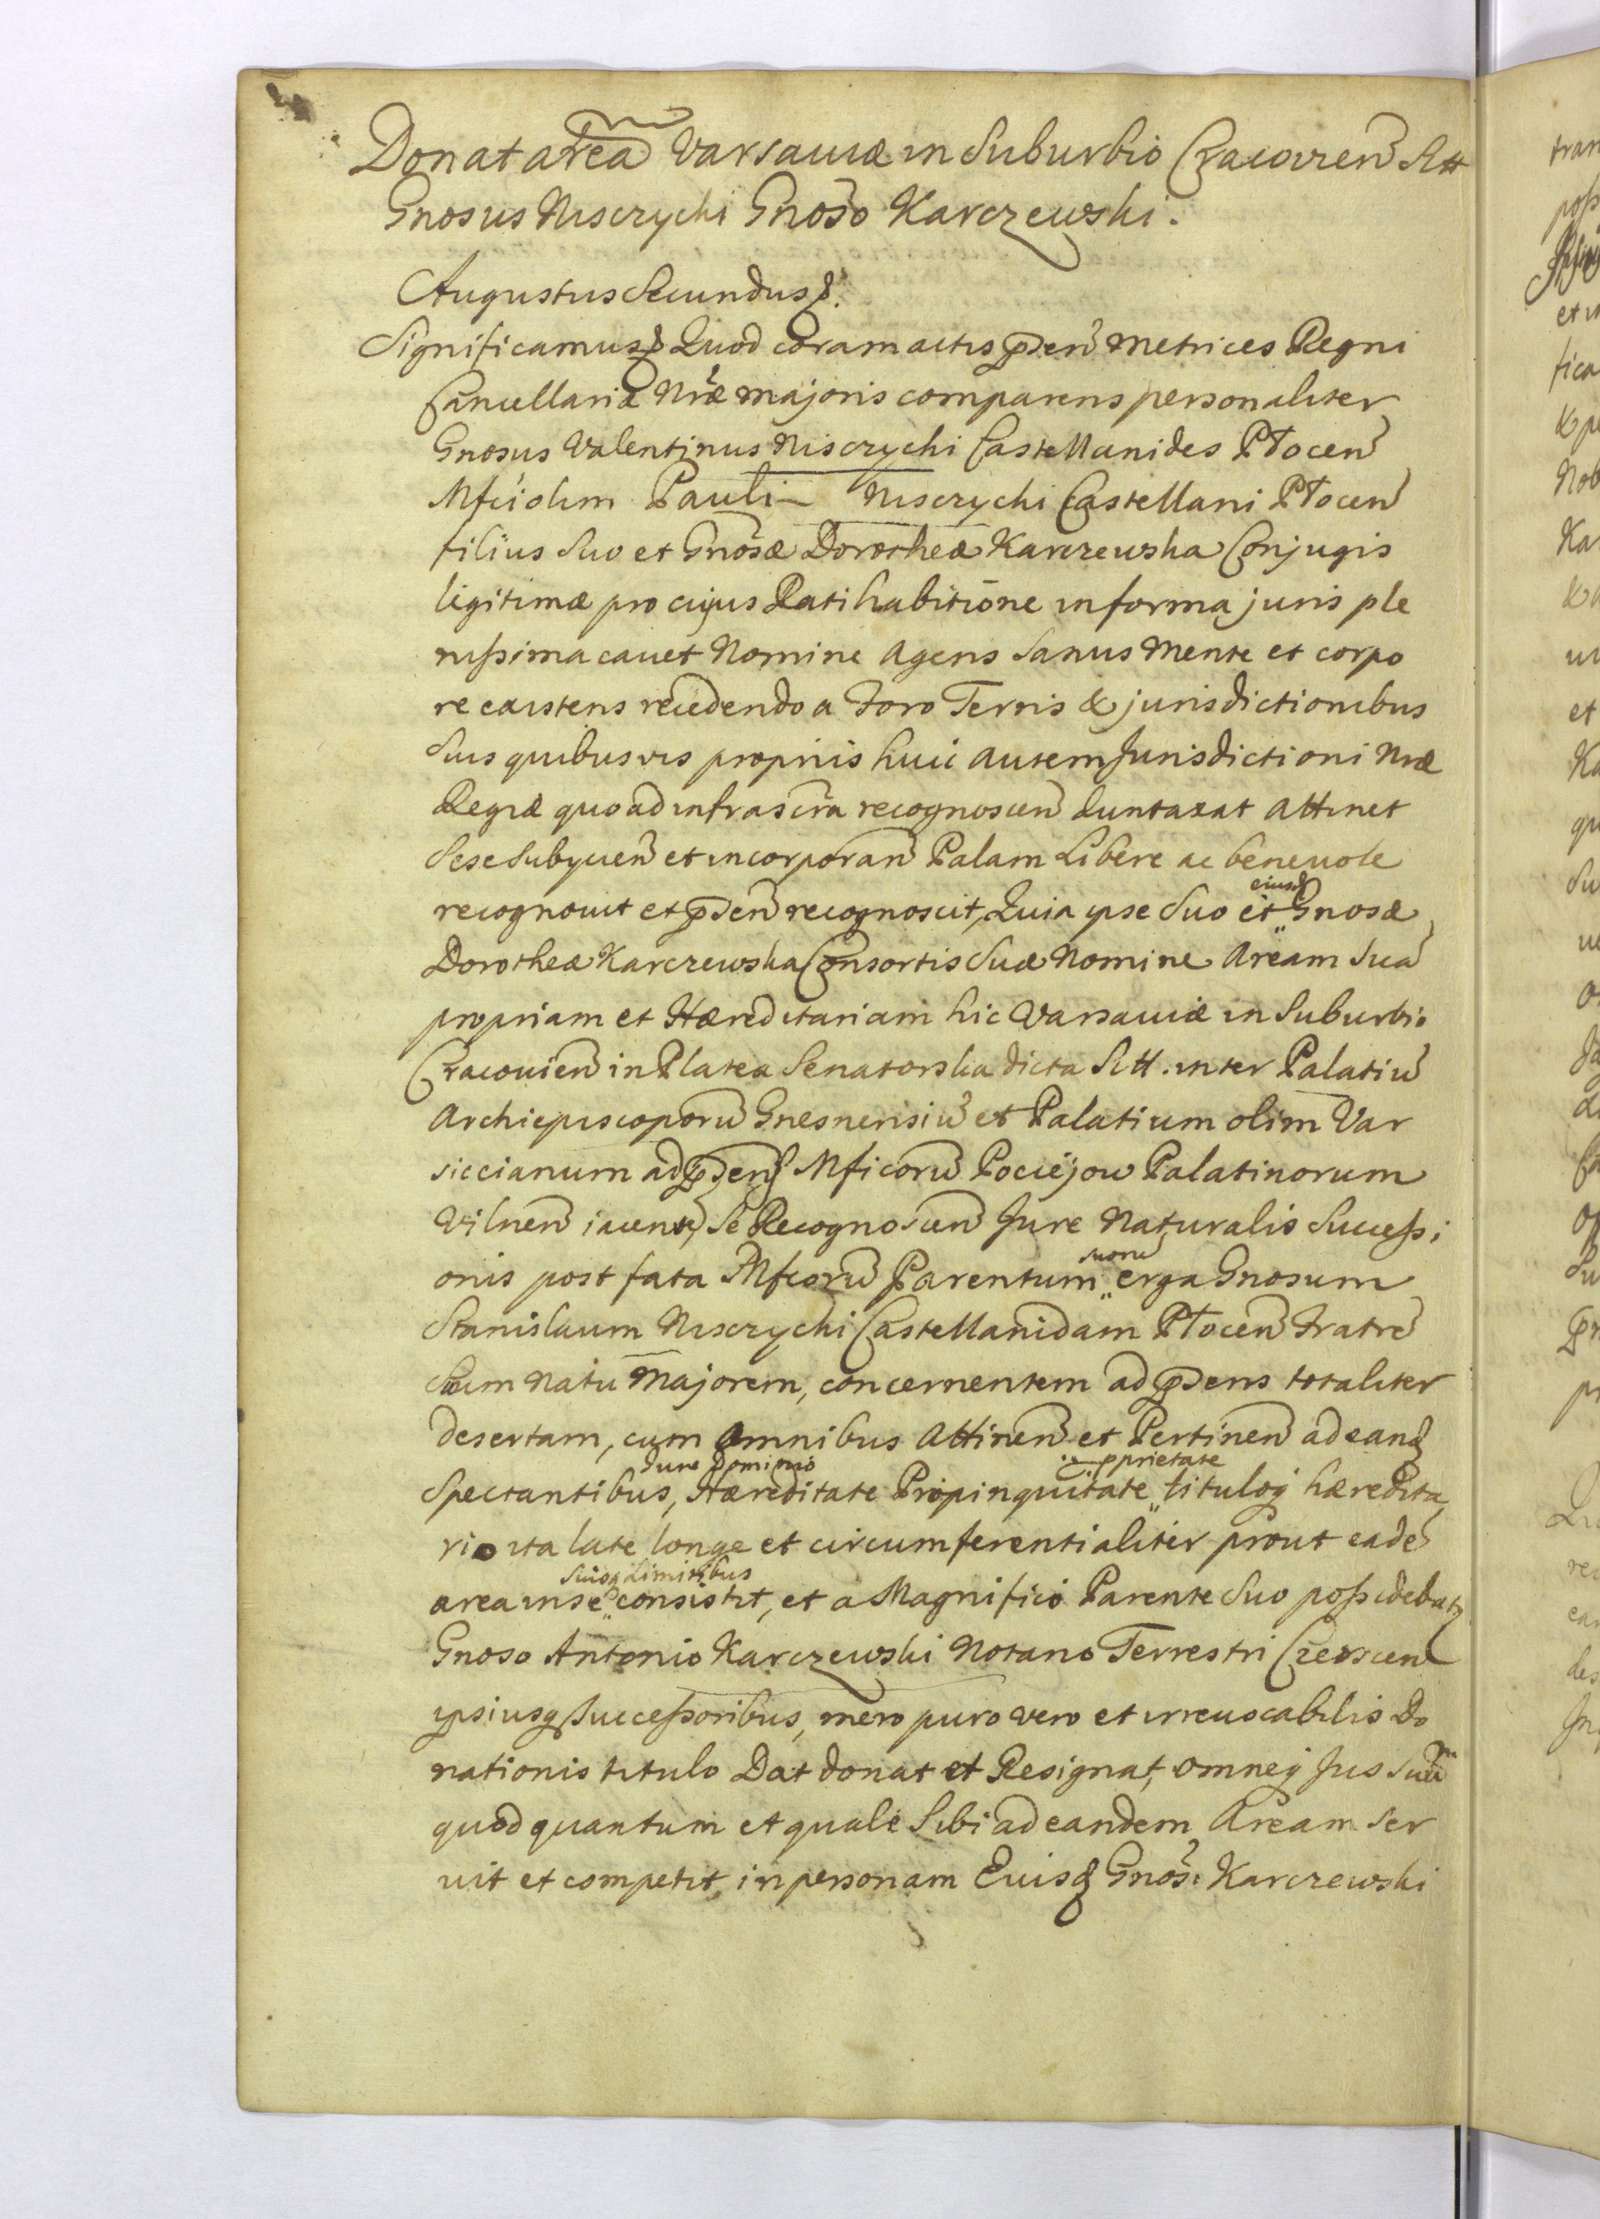 Donat area Varsaviæ in Suburbio Cracovien Sitt
Gnosus Niscrychi Gnoso Karczewski.
Augustus Secundus &.
Significamus & Quod coram actis pden Metrices Regni
Cancellariæ Nræ majoris comparens personaliter
Gnosus Valentinus Niscrychi Castellanides Plocen
Mfci olim Pauli Niscrychi Castellani Plocen
filius Suo et Gnosæ Dorotheæ Karczewska Conjugis
legitimæ pro cujus Ratihabitione in forma juris ple
nissima cavet Nomine Agens Sanus Mente et corpo
re existens recedendo a Foro Terris & jurisdictionibus
Suis quibusvis proprijs huic autem Jurisdictioni Nræ
Regiæ quo ad infrascra recognoscen duntaxat Attinet
Sese Subijcien et incorporan Palam Libere ac benevole
recognovit et pden recognoscit, Quia ipse Suo et eiusd Gnosæ
Dorotheæ Karczewska Consortis Suæ Nomine Aream Sua
propriam et Hæreditariam hic Varsaviæ in Suburbio
Cracovien in Platea Senatorska dicta Sitt. inter Palatiu
Archiepiscoporu Gnesnensiu et Palatium olim Var
siccianum ad pdens Mficoru Pociejow Palatinorum
Vilnen iacente, Se Recognoscen Jure Naturalis Successi
onis post fata Mfcoru Parentum suoru erga Gnosum
Stanislaum Niscrychi Castellanidam Plocen Fratre
Suum Natu Majorem, concernentem ad pdens totaliter
desertam, cum Omnibus Attinen et Pertinen ad eand
Spectantibus, Jure Dominio Hæreditate Propinquitate prietate tituloq hæredita
rio ita late longe et circumferentialiter prout eade
area in se suisq Limitibus consistit, et a Magnifico Parente Suo possidebat
Gnoso Antonio Karczewski Notario Terrestri Czerscen
ipsiusq Successoribus, mero puro vero et irrevocabilis Do
nationis titulo Dat donat et Resignat, omneq Jus Suum
quod quantum et quale Sibi ad eandem Aream Ser
vit et competit, in personam Euisd Gnosi Karczewski